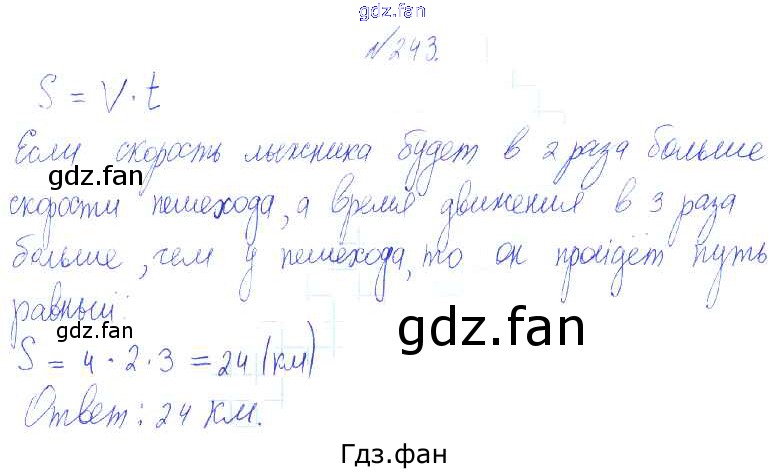 gdz.fan
№243.
S = V·t
Если скорость лыжника будет в 2 раза больше
gdz.fan
скорости пешехода, а время движения в 3 раза
больше, чем у пешехода, то он пройдёт путь
равный:
gdz.fan
gdz.fan
S = 4·2·3 = 24 (км)
Ответ: 24 км.
Гдз.фан